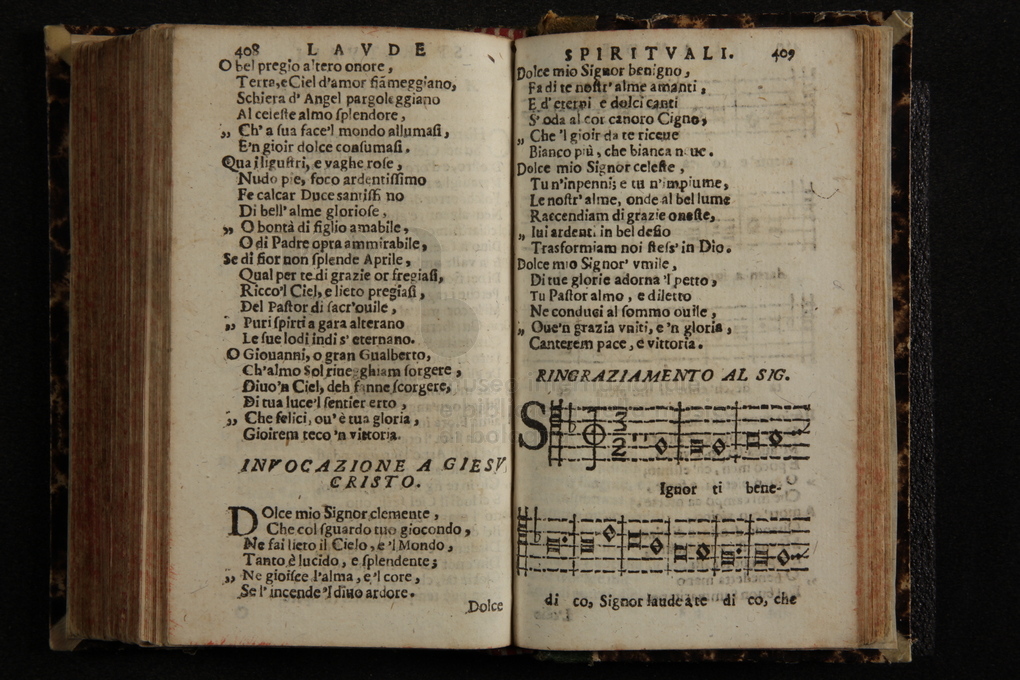 408 LAVDE
O bel pregio altero onore,
Terra, e Ciel d'amor fiãmeggiano,
Schiera d'Angel pargoleggiano
Al celeſte almo ſplendore,
„ Ch' a ſua face'l mondo allumaſi,
E'n gioir dolce conſumaſi.
Qua i liguſtri, e vaghe roſe,
Nudo pie, foco ardentiſſimo
Fe calcar Duce santiſſi no
Di bell' alme glorioſe,
„ O bontà di figlio amabile,
O di Padre opra ammirabile,
Se di fior non ſplende Aprile,
Qual per te di grazie or fregiaſi,
Ricco'l Ciel, e lieto pregiaſi,
Del Paſtor di ſacr'ouile,
„ Puri ſpirti a gara alterano
Le ſue lodi indi s' eternano.
O Giouanni, o gran Gualberto,
Ch'almo Sol ghiam ſorgere,
Diuo'n Ciel, deh f nne ſcorgere,
Di tua luce'l ſentier erto,
„ Che felici, ou' è tua gloria,
Gioirem teco 'n vittoria.
INVOCAZIONE A GIESV
CRISTO.
DOlce mio Signor clemente,
Che col ſguardo tuo giocondo,
Ne fai lieto il Cielo, e 'l Mondo,
Tanto è lucido, e ſplendente;
„ Ne gioiſce l'alma, e 'l core,
Se l' incende 'l diuo ardore.
Dolce
SPIRITVALI. 409
Dolce mio Signor benigno,
Fa di te noſtr' alme amanti,
E d' eterni e dolci canti
S' oda al cor canoro Cigno,
„ Che 'l gioir da te riceue
Bianco più, che bianca neue.
Dolce mio Signor celeſte,
Tu n'inpenni; e tu n'impiume,
Le noſtr' alme, onde al bel lume
Raccendiam di grazie oneſte,
„ Iui ardenti in bel deſio
Trasformiam noi ſteſſ' in Dio.
Dolce mio Signor' vmile,
Di tue glorie adorna 'l petto,
Tu Paſtor almo, e diletto
Ne conduci al ſommo ouile,
„ Oue'n grazia vniti, e 'n gloria,
Canterem pace, e vittoria.
RINGRAZIAMENTO AL SIG.
S
3
2
Ignor ti bene-
di co, Signor laude à te di co, che